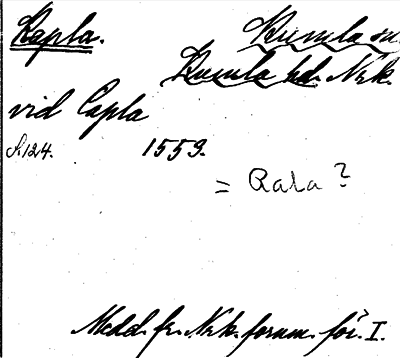 Kapla. Kumla sn.
Kumla hd. Nrk.
vid Capla
S. 124. 1559.
= Rala ?
Medd. fr. Nrk. fornm. för. I.